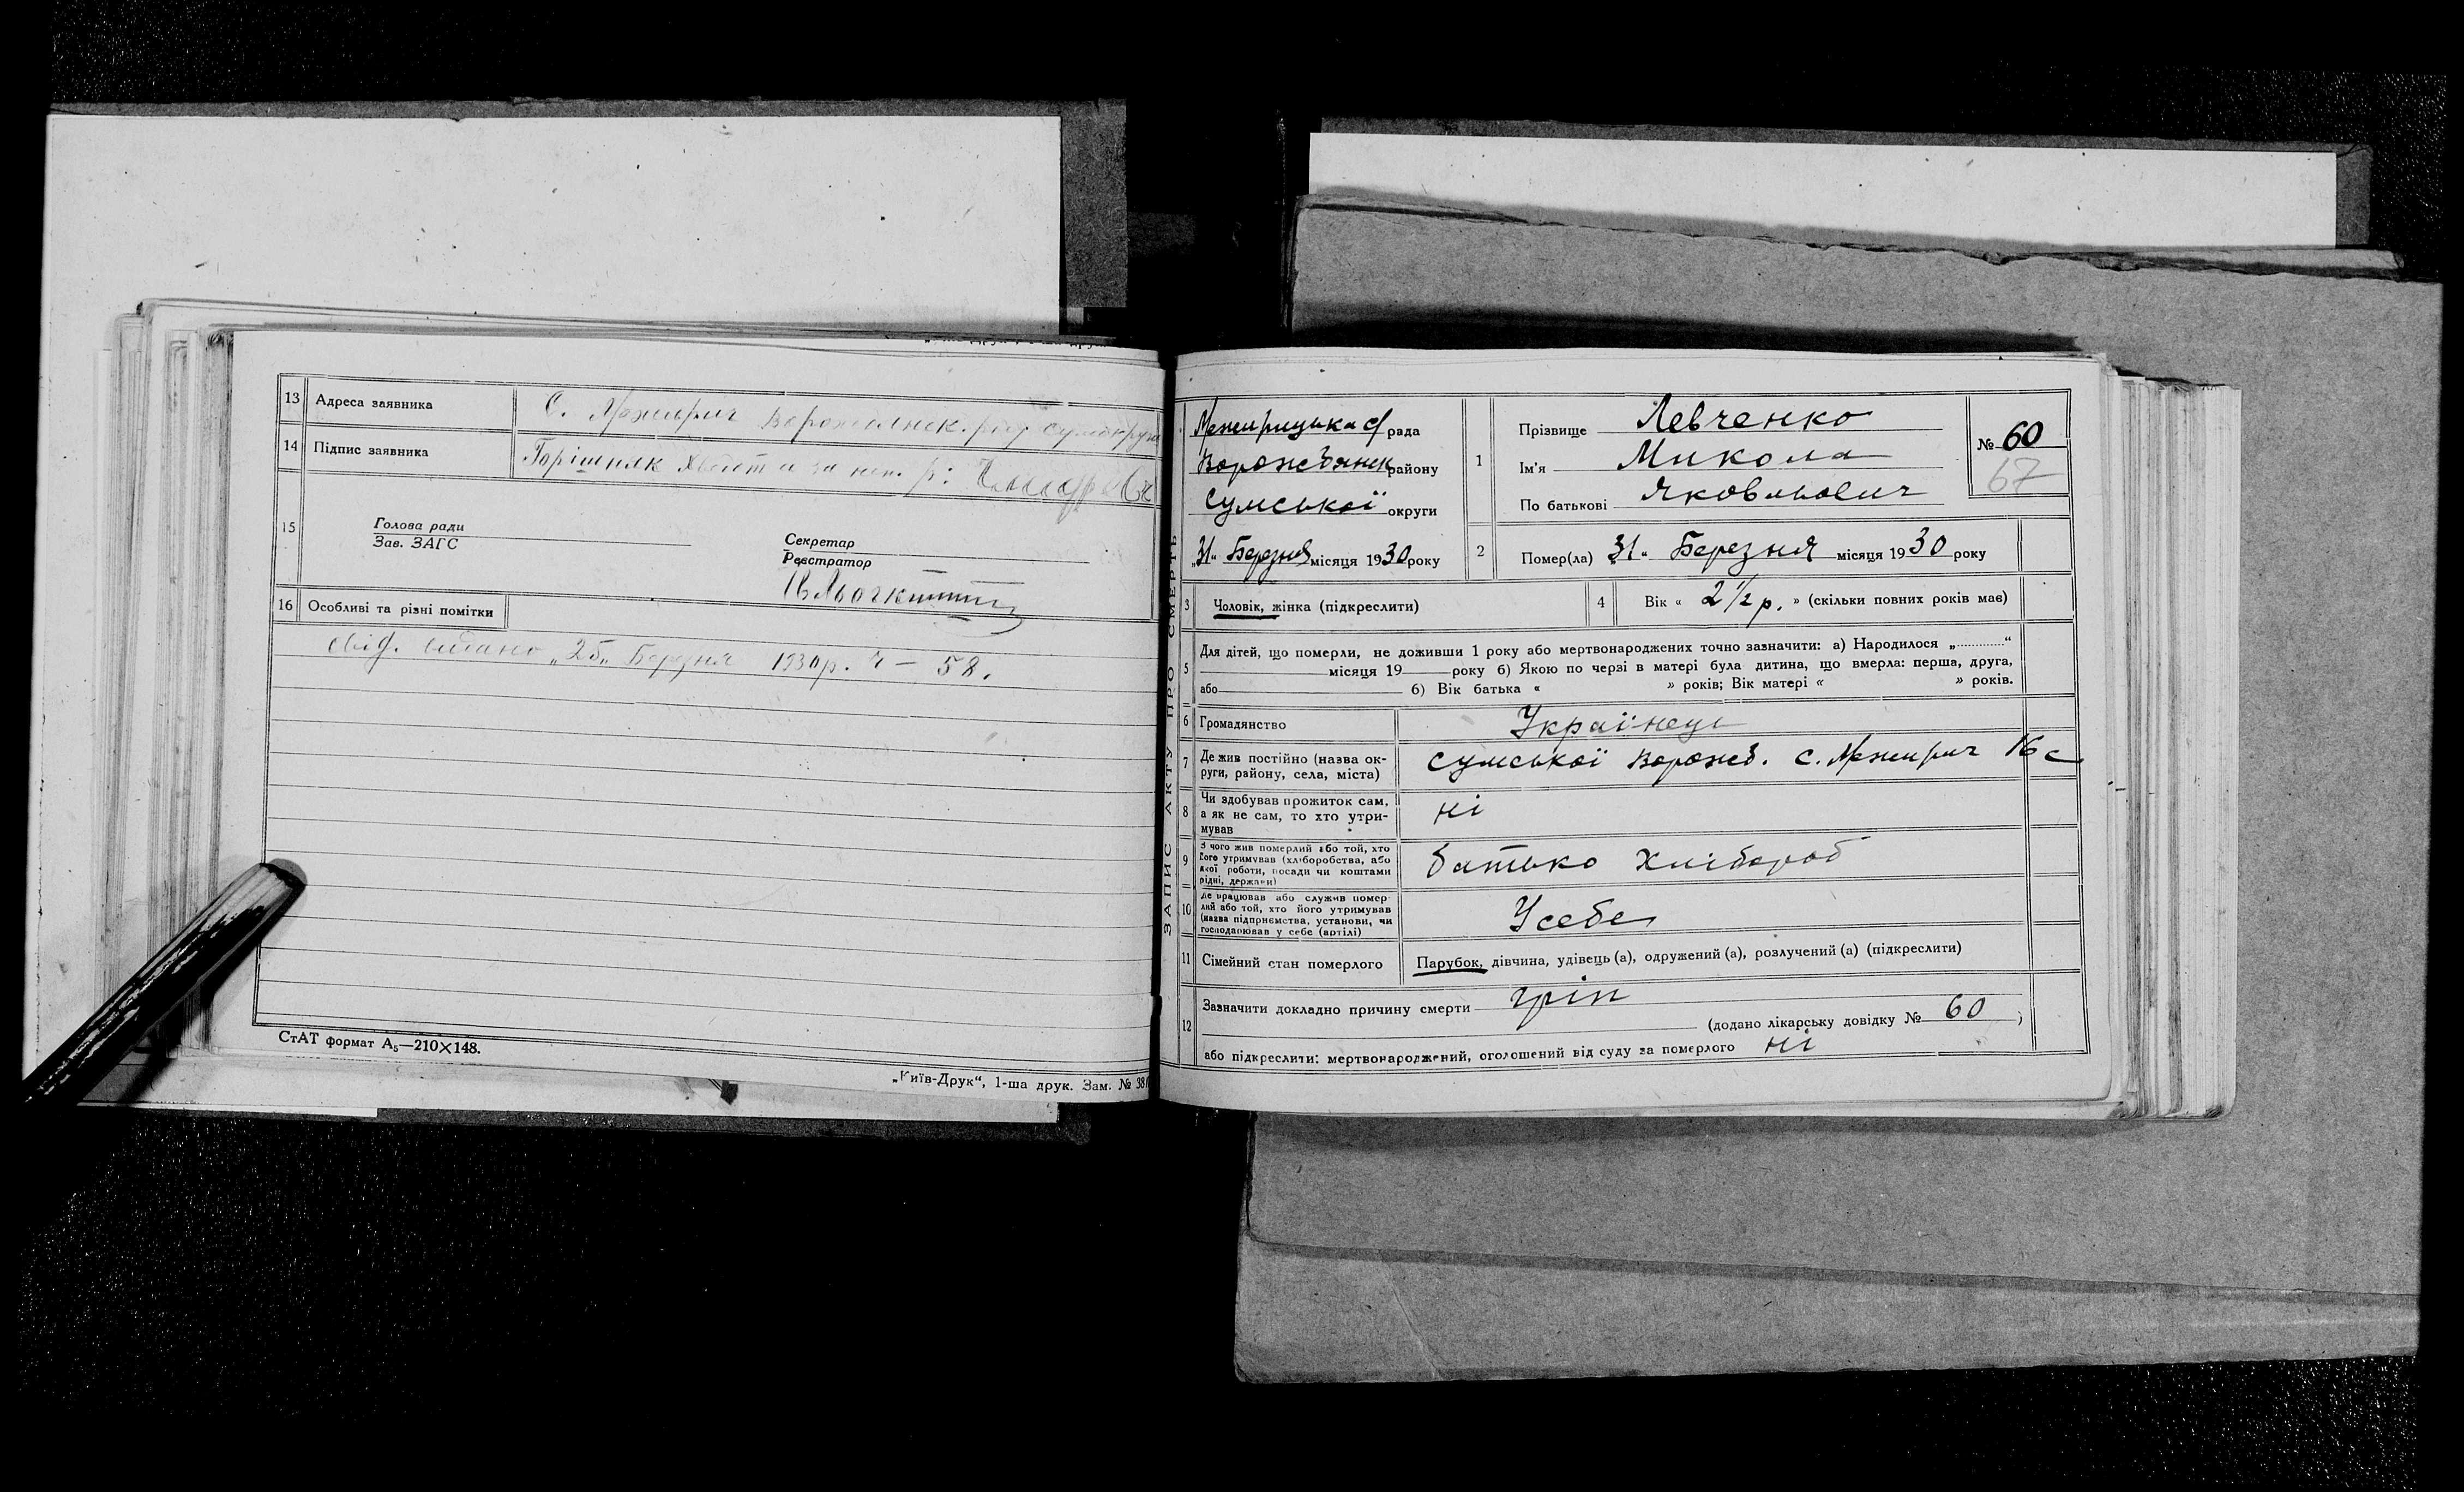 13 Адреса заявника С. Межирич Ворожбянск. рай Сумськ
14 Підпис заявника Горішняк а за неп. р:
15 Голова ради
Зав. ЗАГС
Секретар
Реєстратор
16 Особливі та різні помітки
свід. видано „25„ Березня 1930р. ч — 58.
СтАТ формат А₅—210×148.
„Київ-Друк“, 1-ша друк. Зам. №
ЗАПИС АКТУ ПРО СМЕРТЬ
Межирицька с/рада
Ворожбянск району
Сумської округи
„31“ Березня місяця 1930 року
1 Прізвище Левченко
Ім'я Микола
По батькові Яковльович
№ 60
67
2 Помер(ла) 31“ Березня місяця 1930 року
3 Чоловік, жінка (підкреслити)
4 Вік « 2 1/2 р. » (скільки повних років має)
5 Для дітей, що померли, не доживши 1 року або мертвонароджених точно зазначити: а) Народилося „............“
місяця 19 року б) Якою по черзі в матері була дитина, що вмерла: перша, друга,
або б) Вік батька « » років; Вік матері « » років.
6 Громадянство Українець
7 Де жив постійно (назва ок-
руги, району, села, міста) Сумської Ворожб. с. Межирич 16 с
8 Чи здобував прожиток сам,
а як не сам, то хто утри-
мував ні
9 З чого жив померлий або той, хто
його утримував (хліборобства, або
якої роботи, посади чи коштами
рідні, держави) батько хлібороб
10 Де працював або служив помер-
лий або той, хто його утримував
(назва підприємства, установи, чи
господарював у себе (артілі) Усебе
11 Сімейний стан померлого Парубок, дівчина, удівець(а), одружений(а), розлучений(а) (підкреслити)
12 Зазначити докладно причину смерти гріп
(додано лікарську довідку № 60 )
або підкреслити: мертвонароджений, оголошений від суду за померлого ні